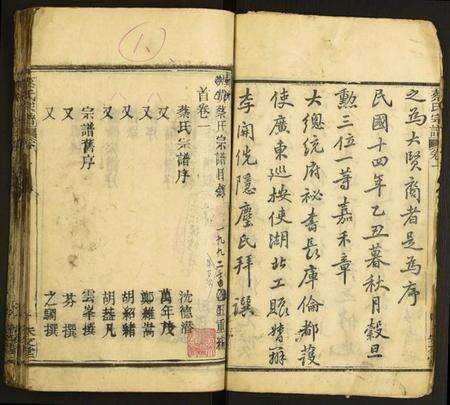 之為大賢裔者是為序
民國十四年乙丑暮秋月穀旦
勳三位一等嘉禾章
大總統府祕書長庫倫都護
使廣東巡按使湖北工賑督辦
李開侁隱塵氏拜撰
蔡氏宗譜
卷一
蔡氏宗譜目錄
首卷一
蔡氏宗譜序 沈德潛
又 萬年茂
又 鄭維嵩
又 胡紹
又 胡 凡
宗譜舊序 雲峯撰
又 芬撰
又 之驥撰